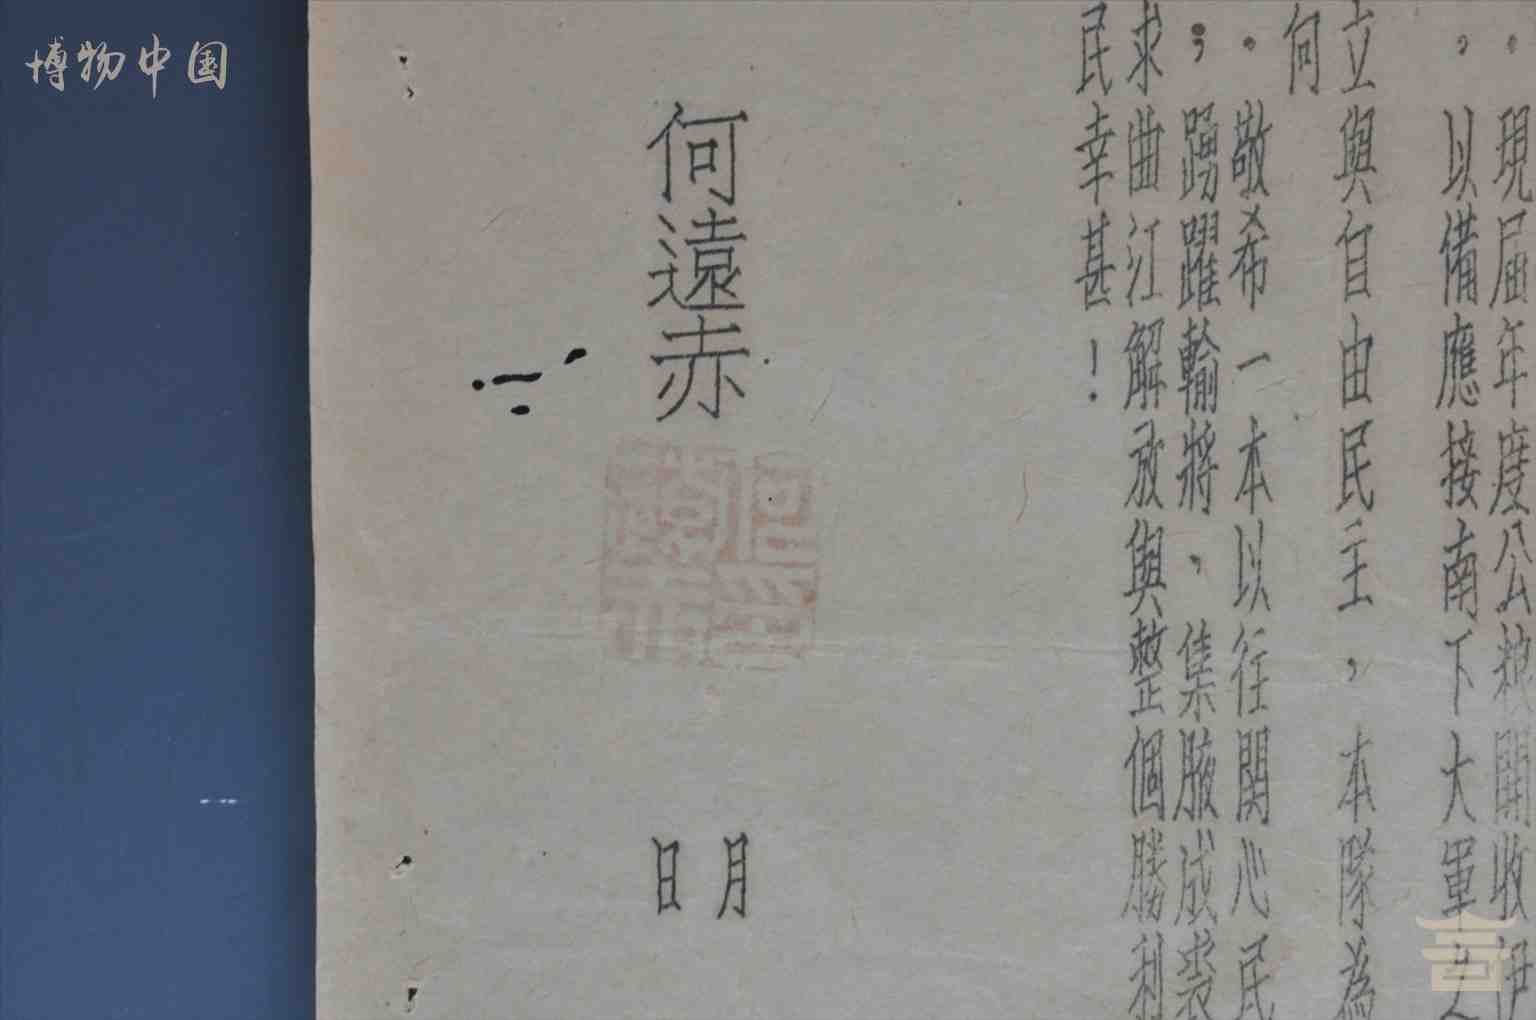 博物中国
。現屆年度公粮開收伊
，以備應接南下大軍之
立與自由民主，本隊為
何
。敬希一本以往関心民
；踴躍輸將，集腋成裘
求曲江解放與整個勝利
民幸甚！
何遠赤
月
日